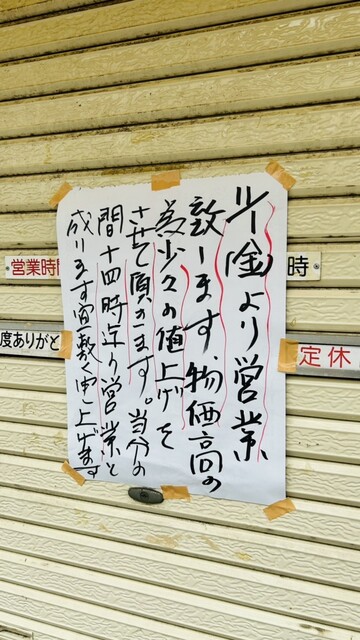 金より営業
致します、物価高の
為少々の値上げを
させて頂きます。当分の
間十四時迄の営業と
成ります宜敷く申上げます
営業時
時
度ありがと
定休